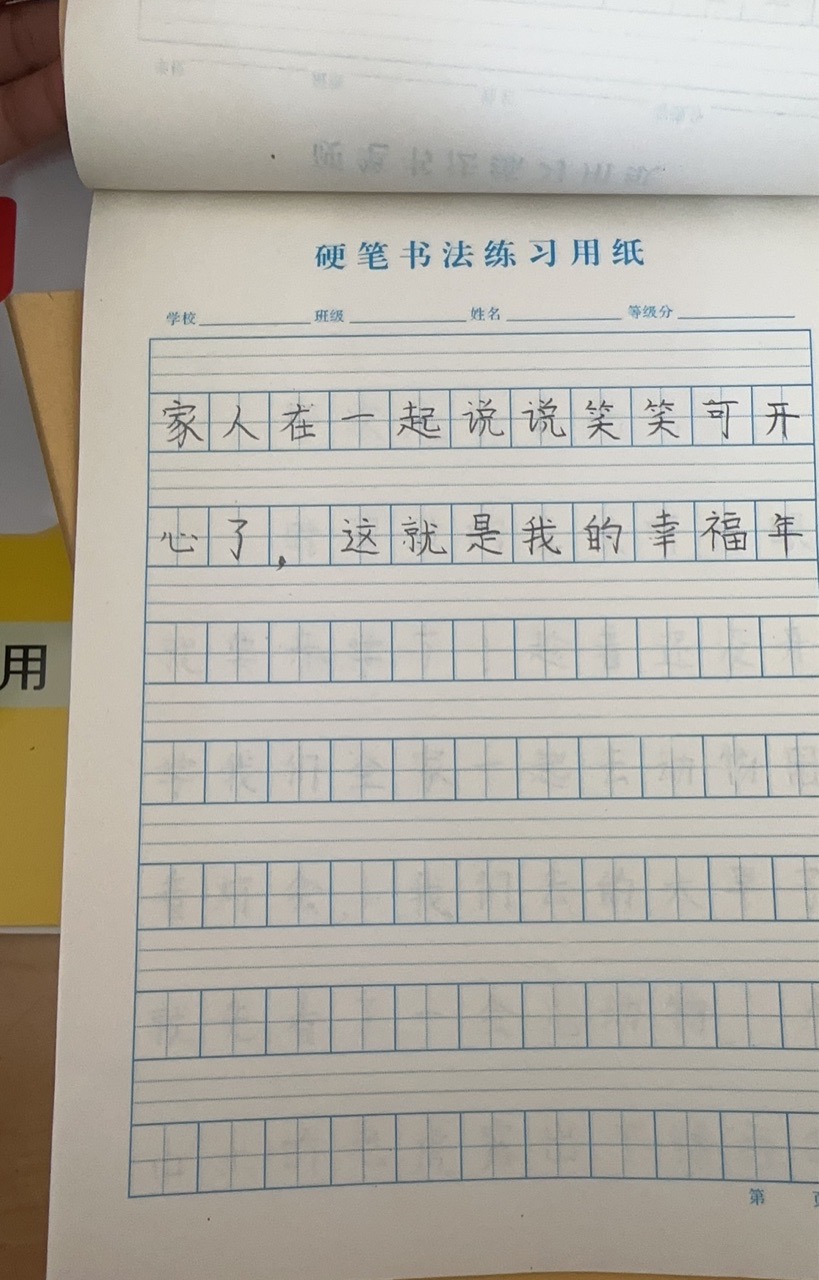 硬笔书法练习用纸
学校 班级 姓名 等级分
家人在一起说说笑笑可开
心了，这就是我的幸福年
用
第